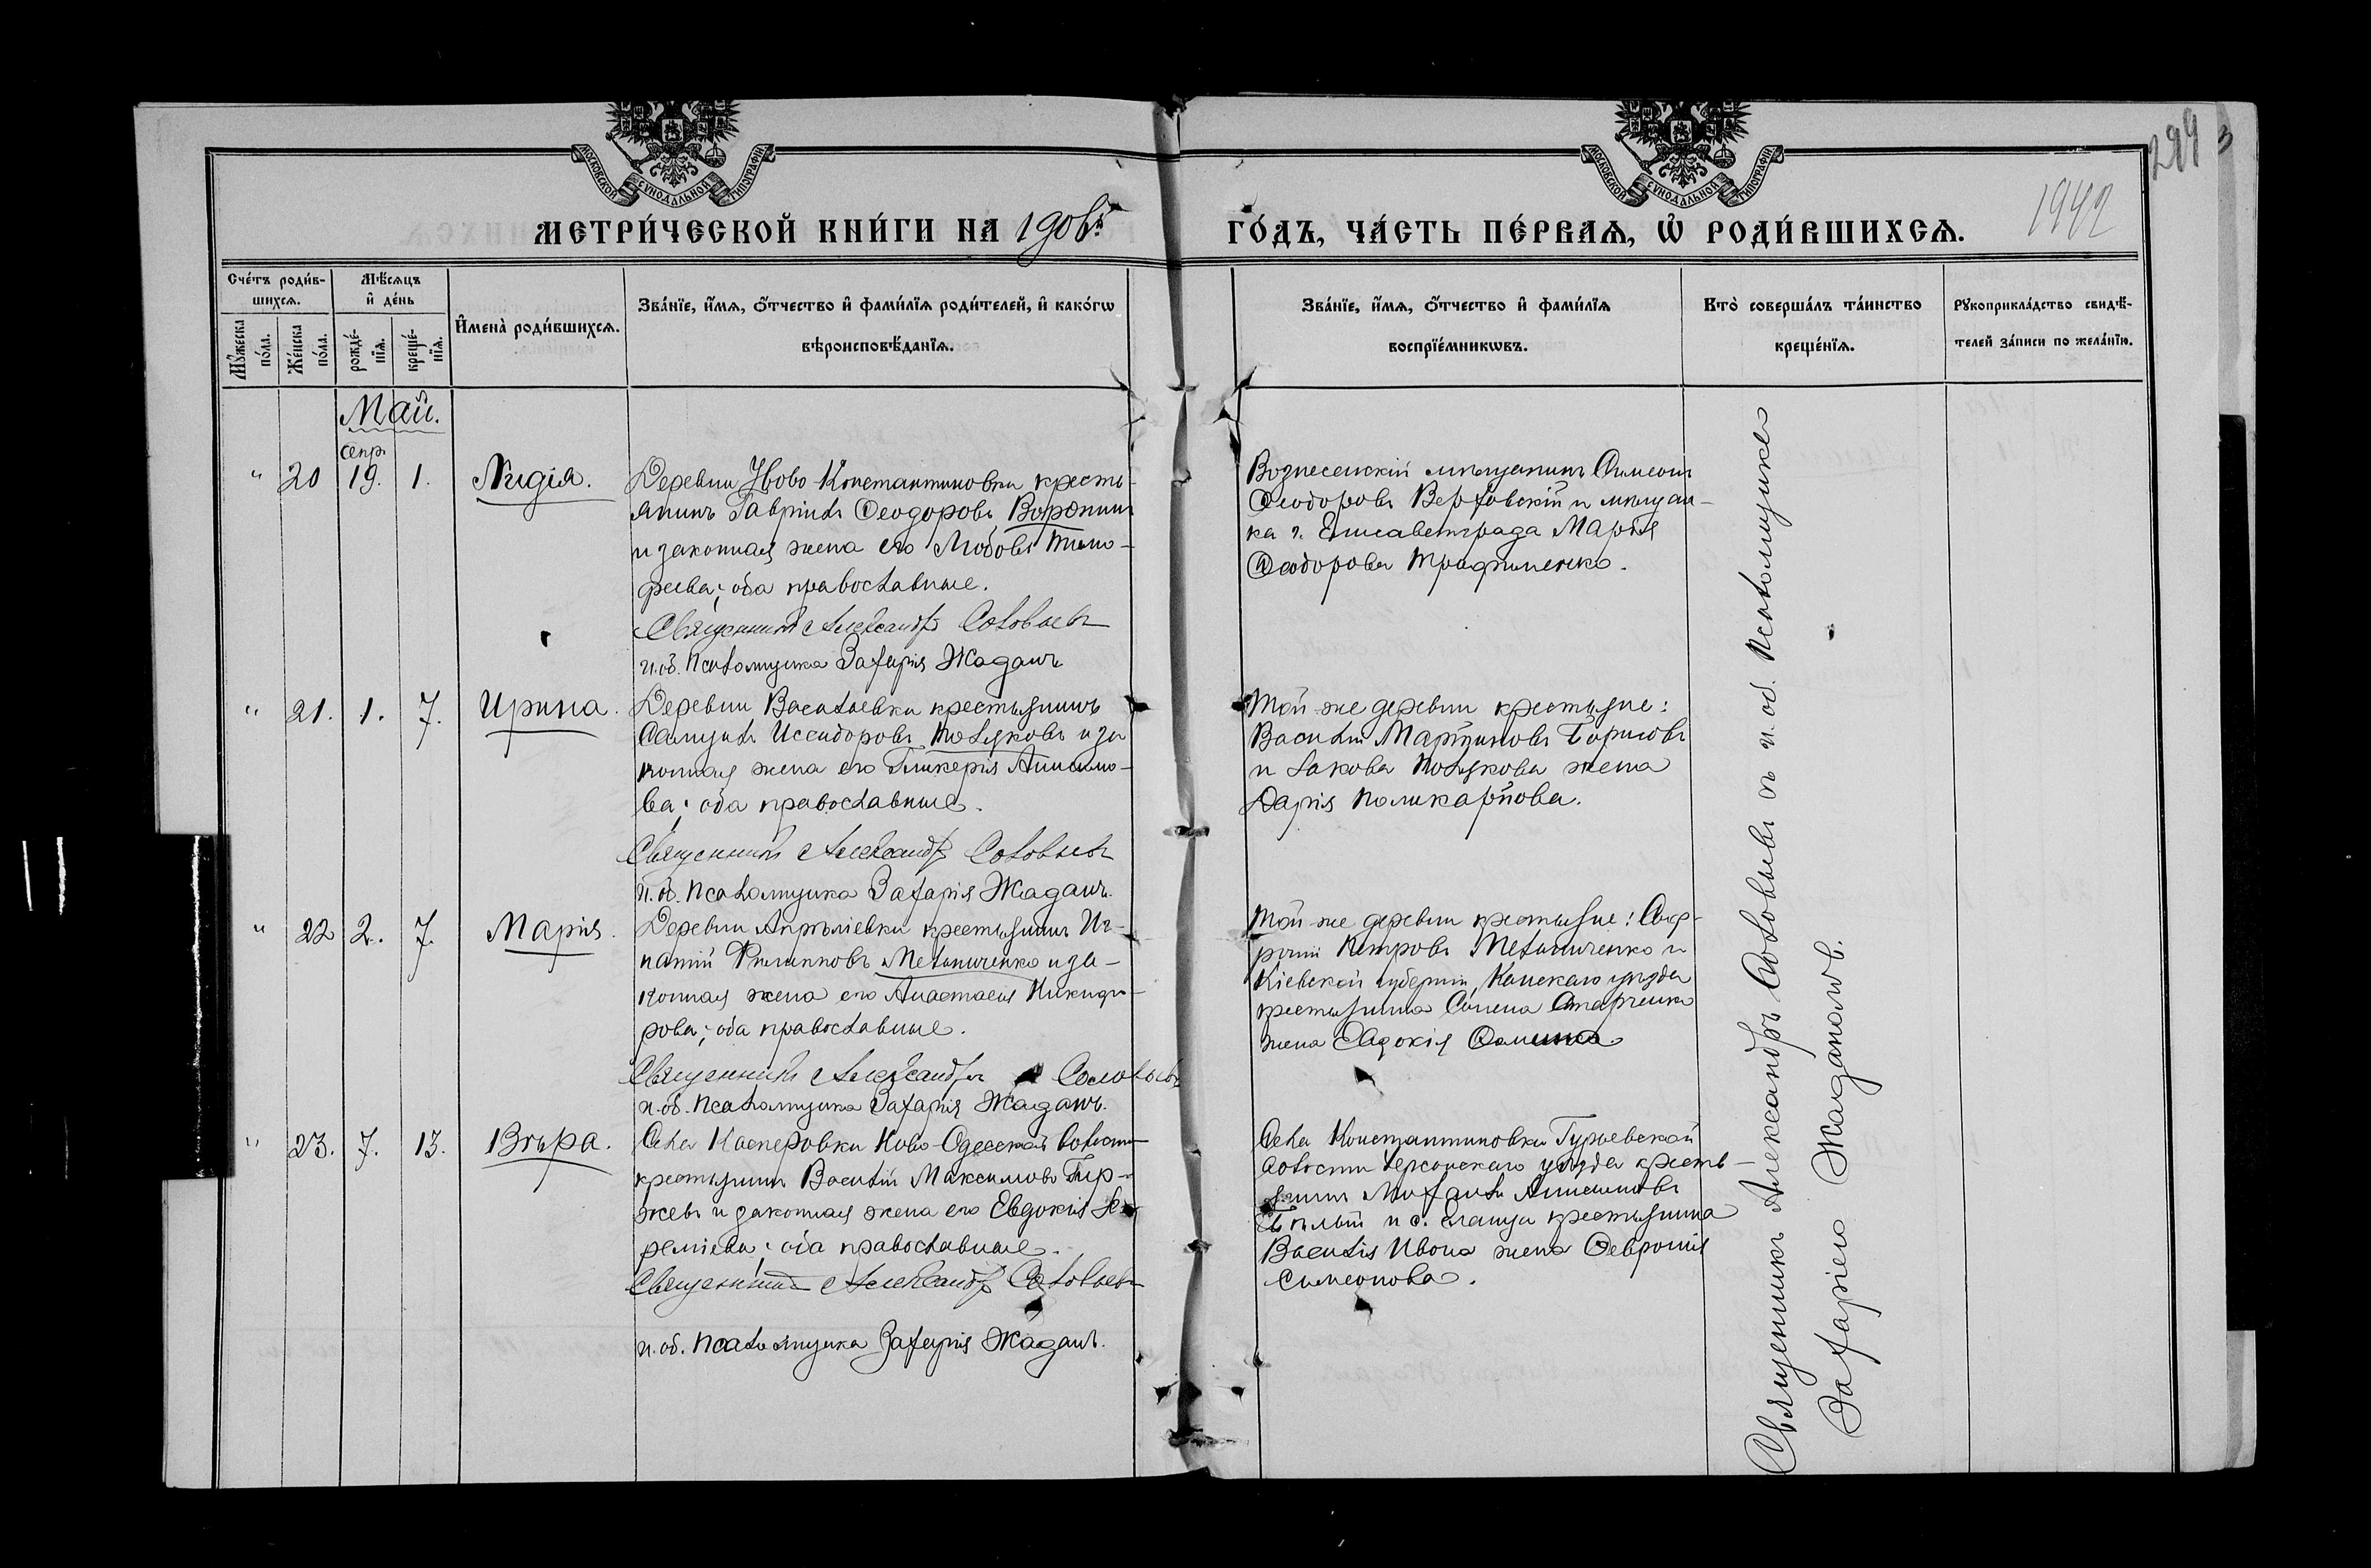 МОСКОВСКОЙ СѴНОДАЛЬНОЙ ТИПОГРАФІИ
МОСКОВСКОЙ СѴНОДАЛЬНОЙ ТИПОГРАФІИ
299
1942
МЕТРИ́ЧЕСКОЙ КНИ́ГИ НА 1906й
ГО́ДЪ, ЧА́СТЬ ПЕ́РВАѦ, Ѡ҆ РОДИ́ВШИХСѦ.
Сче́тъ роди́в-
шихсѧ.
Мꙋ́жеска по́ла.
Же́нска по́ла.
Мѣ́сѧцъ
и҆ де́нь
рожде́-
нїѧ.
креще́-
нїѧ.
И҆мена̀ роди́вшихсѧ.
Зва́нїе, и҆́мѧ, ѻ҆́тчество и҆ фами́лїѧ роди́телей, и҆ како́гѡ
вѣроисповѣ́данїѧ.
Зва́нїе, и҆́мѧ, ѻ҆́тчество и҆ фами́лїѧ
воспрїе́мникѡвъ.
Кто̀ соверша́лъ та́инство
креще́нїѧ.
Рꙋкоприкла́дство свидѣ́-
телей за́писи по жела́нїю.
Май.
" 20 19. 1. Лидія.
Деревни Ново-Константиновки кресть-
янинъ Гавріилъ Ѳеодоровъ Воронинъ
и законная жена его Любовь Тимо-
феева; оба православные.
Священникъ Александръ Соловьевъ
и.об. псаломщика Захарія Жаданъ
Вознесенскій мѣщанинъ Симеонъ
Ѳеодоровъ Вербовскій и мѣщан-
ка г. Елисаветграда Марія
Ѳеодорова Трифиненко.
" 21. 1. 7. Ирина.
Деревни Васильевки крестьянинъ
Самуилъ Исидоровъ Поляковъ и за
конная жена его Гликерія Анисимо-
ва; оба православные.
Священникъ Александръ Соловьевъ
и.об. псаломщика Захарія Жаданъ.
Той-же деревни крестьяне:
Василій Мартиновъ Борисовъ
и Іакова Полякова жена
Дарія Поликарпова.
" 22 2. 7. Марія.
Деревни Апрѣліевки крестьянинъ Иг-
натій Филипповъ Мельниченко и за-
конная жена его Анастасія Никифо-
рова; оба православные.
Священникъ Александръ Соловьевъ
и.об. псаломщика Захарія Жаданъ.
Той-же деревни крестьяне: Соф-
роній Петровъ Мельниченко и
Кіевской губерніи, Каневскаго уѣзда
крестьянина Старченка
жена Евдокія Ѳомина
" 23. 7. 13. Вѣра.
Села Касперовки Ново-Одесской волости
крестьянинъ Василій Максимовъ Бир-
жевъ и законная жена его Евдокія Іе-
реміева; оба православные.
Священникъ Александръ Соловьевъ
и.об. псаломщика Захарія Жаданъ.
Села Константиновки Гурьевской
волости Херсонскаго уѣзда кресть-
янинъ Михаилъ Анисимовъ
Бѣлый и с. крестьянина
Василія Ивона жена Февронія
Симеонова.
Священникъ Александръ Соловьевъ съ и.об. псаломщика
Захаріею Жаданомъ.